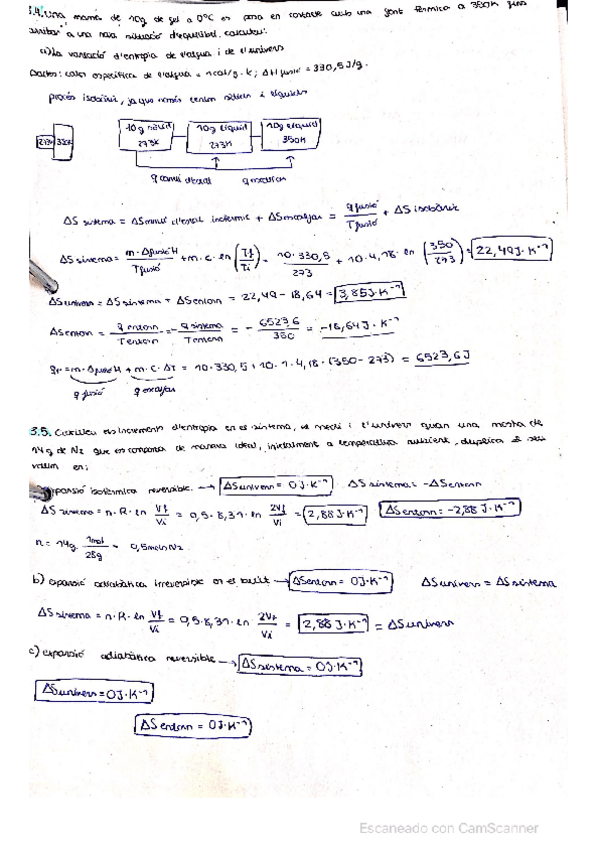 3.4. Una massa de 10g de gel a 0ºC es posa en contacte amb una font tèrmica a 350K fins
arribar a una nova situació d'equilibri. Calculeu:
a) La variació d'entropia de l'aigua i de l'univers
Dades: calor específica de l'aigua = 1cal/g·K; ΔHfusió = 330,5J/g.
procés isobàric, ja que només tenim sòlids i líquids
273K 350K
10g sòlid 273K
10g líquid 273K
10g líquid 350K
q canvi d'estat
ΔS sistema = ΔScanvi d'estat isotèrmic + ΔSescalfar = q fusió / T fusió + ΔS isobàric
ΔS sistema = m·ΔfusióH / Tfusió + m·c·ln (Tf / Ti) = 10·330,5 / 273 + 10·4,18·ln (350 / 273) = 22,49 J·K⁻¹
ΔSunivers = ΔSsistema + ΔSentorn = 22,49 - 18,64 = 3,85J·K⁻¹
ΔSentorn = q entorn / T entorn = -q sistema / T entorn = - 6523,6 / 350 = -18,64 J·K⁻¹
qp = m·ΔfusióH + m·c·ΔT = 10·330,5 + 10·1·4,18·(350-273) = 6523,6J
q fusió q escalfar
3.5. Calculeu els increments d'entropia en el sistema, el medi i l'univers quan una mostra de
14g de N2 que es comporta de manera ideal, inicialment a temperatura ambient, duplica el seu
volum en:
expansió isotèrmica reversible. → ΔSunivers = 0J·K⁻¹ ΔS sistema = -ΔSentorn
ΔS sistema = n·R·ln Vf / Vi = 0,5·8,31·ln 2Vi / Vi = 2,88 J·K⁻¹ ΔSentorn = -2,88 J·K⁻¹
n = 14g · 1mol / 28g = 0,5mols N2
b) expansió adiabàtica irreversible en el buit → ΔSentorn = 0J·K⁻¹ ΔSunivers = ΔSsistema
ΔS sistema = n·R·ln Vf / Vi = 0,5·8,31·ln 2Vi / Vi = 2,88 J·K⁻¹ = ΔSunivers
c) expansió adiabàtica reversible → ΔSsistema = 0J·K⁻¹
ΔSunivers = 0J·K⁻¹
ΔSentorn = 0J·K⁻¹
Escaneado con CamScanner